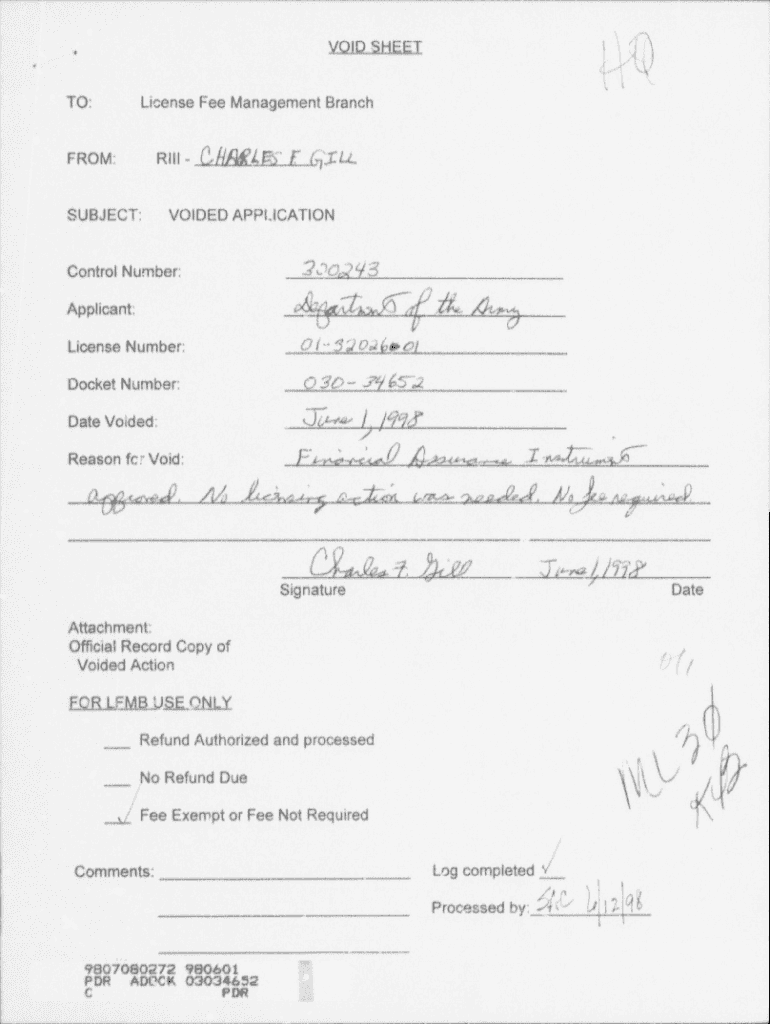 VOID SHEET
HQ
TO: License Fee Management Branch
FROM: RIII - CHARLES F GILL
SUBJECT: VOIDED APPLICATION
Control Number: 300243
Applicant: Department of the Army
License Number: 01-32026-01
Docket Number: 030-34652
Date Voided: June 1, 1998
Reason for Void: Financial Assurance Instrument
approved. No licensing action was needed. No fee required.
Charles F. Gill June 1, 1998
Signature Date
Attachment:
Official Record Copy of
Voided Action
FOR LFMB USE ONLY
Refund Authorized and processed
No Refund Due
✓ Fee Exempt or Fee Not Required
ML30
Comments: Log completed ✓
Processed by: 6/12/98
9807080272 980601
PDR ADOCK 03034652
C PDR